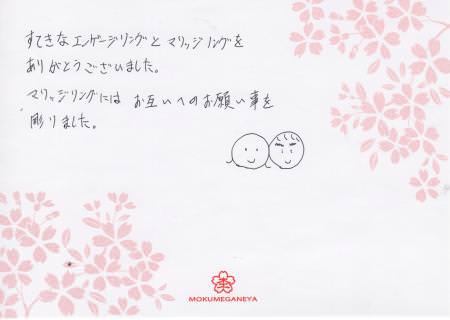 すてきなエンゲージリングとマリッジリングを
ありがとうございました。
マリッジリングには お互いへのお願い事を
彫りました。
MOKUMEGANEYA